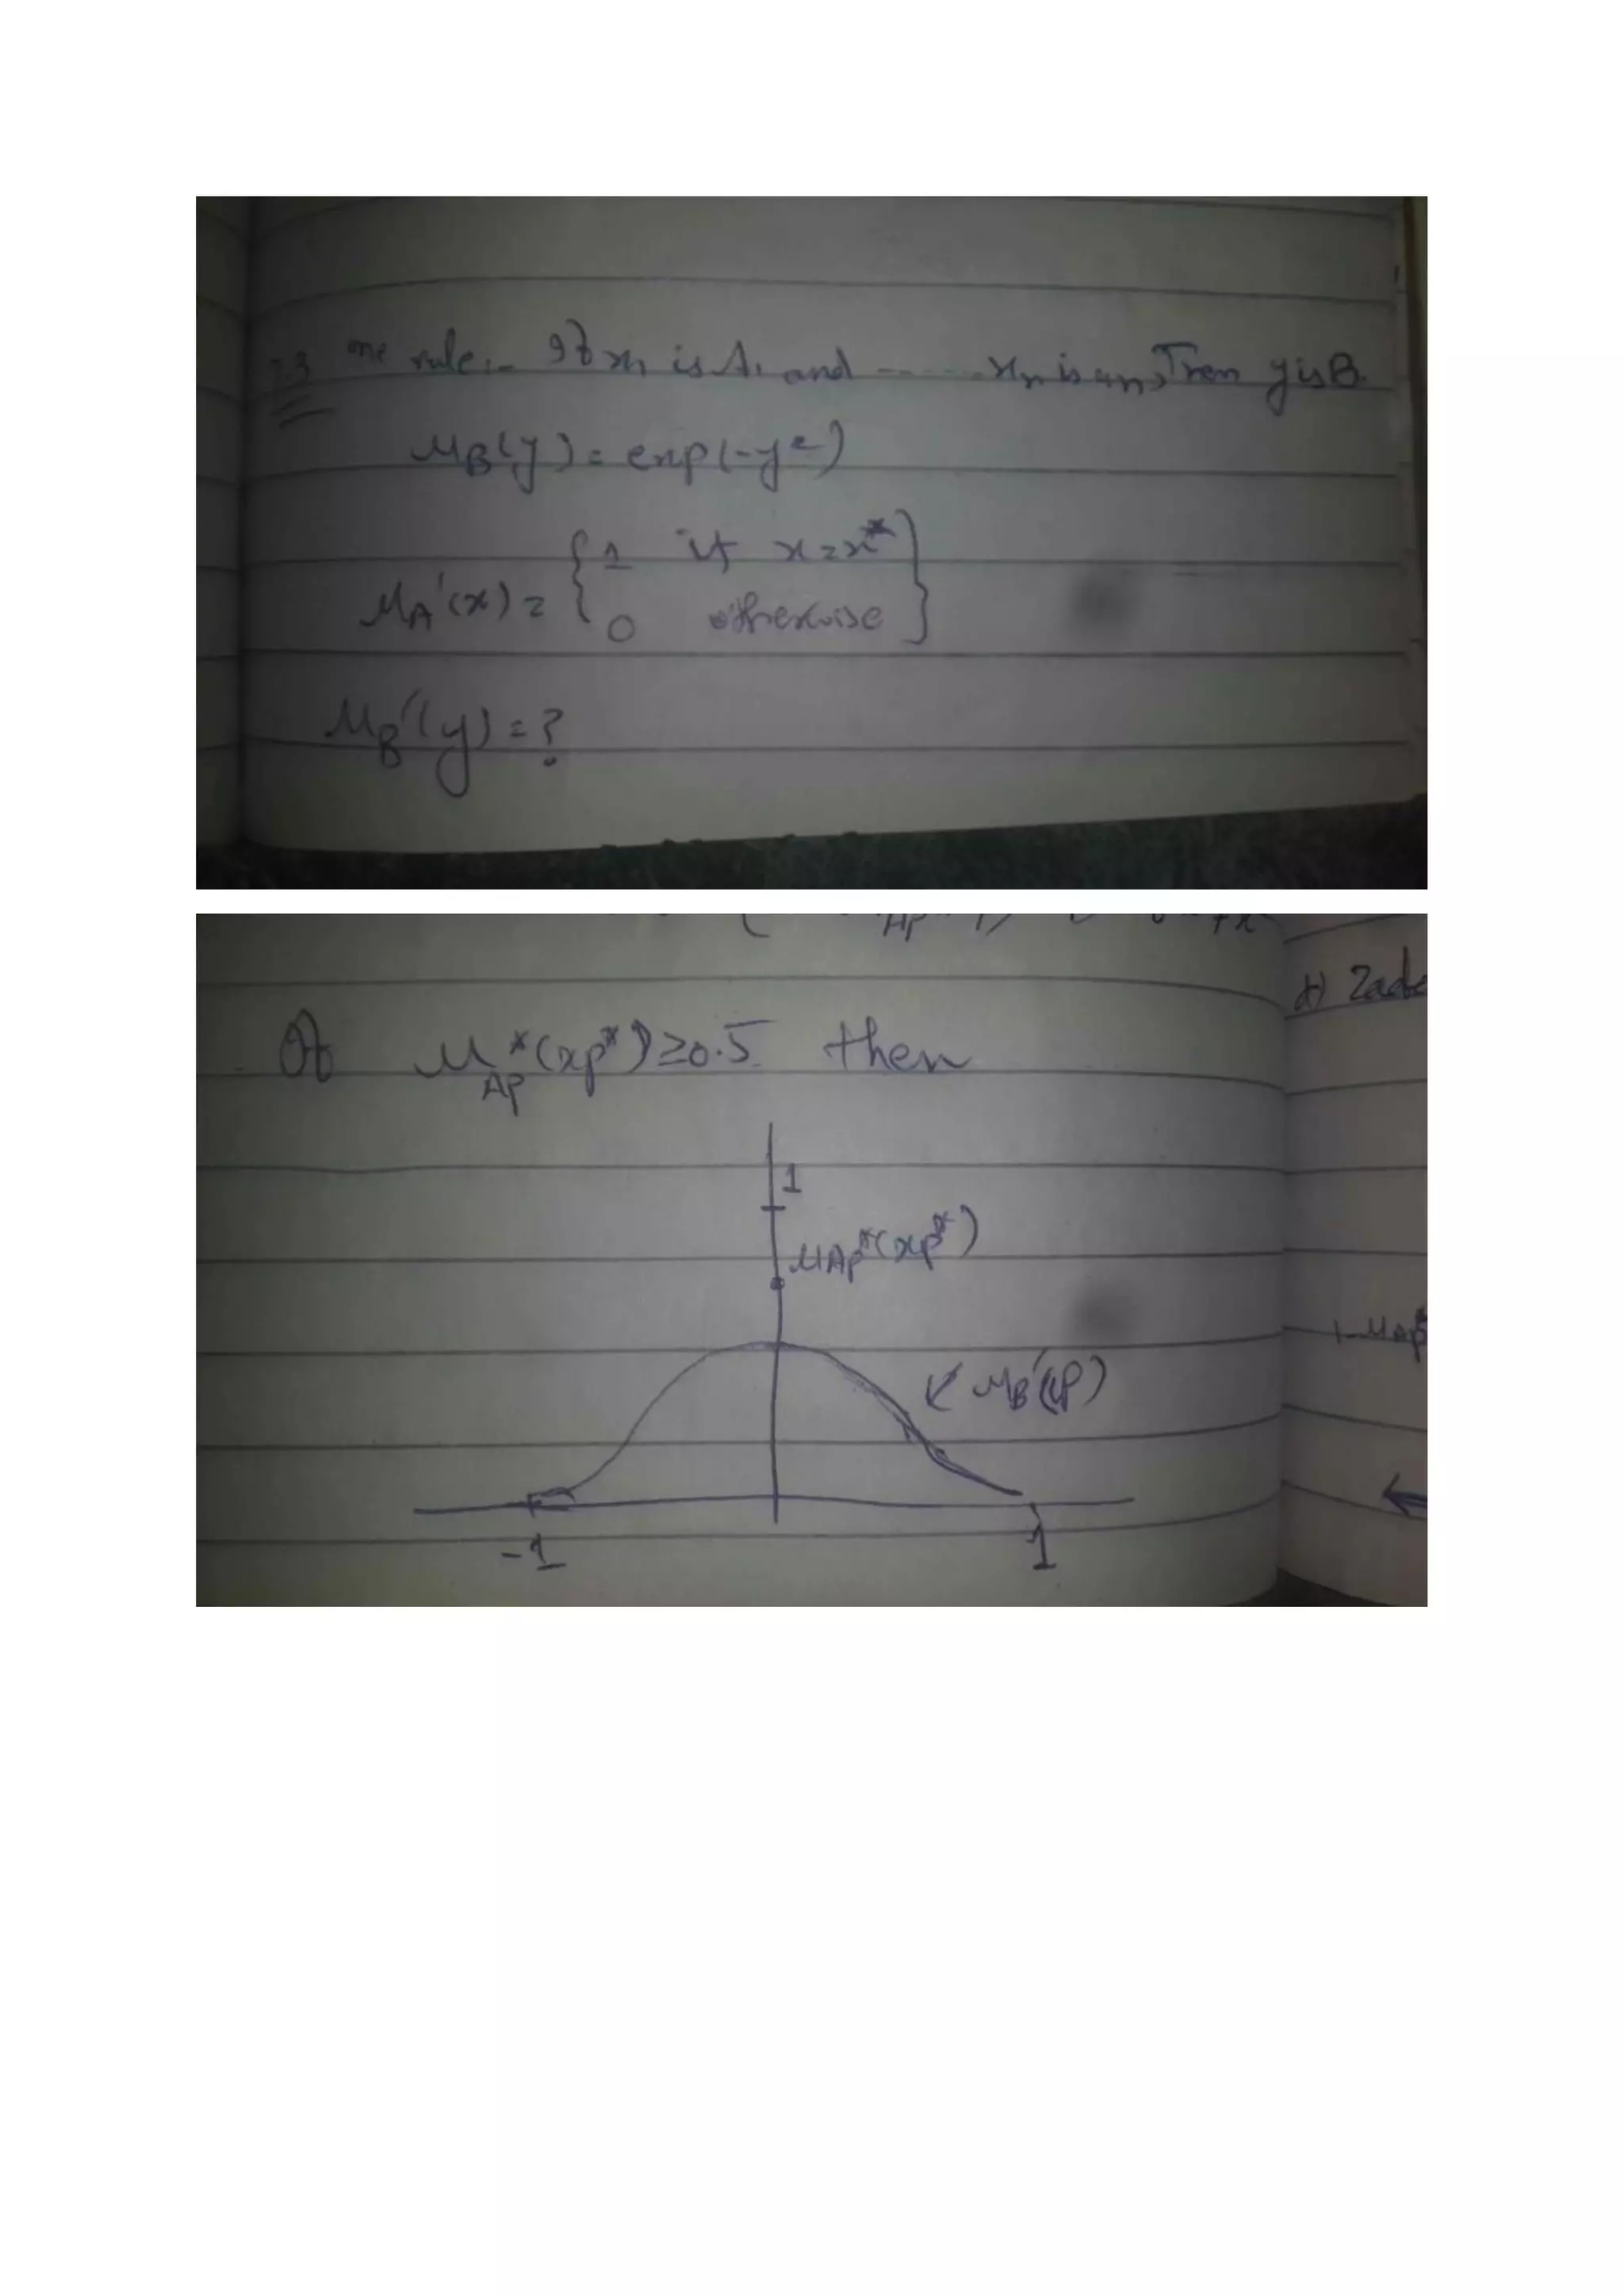 one rule:- If x₁ is A₁ and ------ xₙ is Aₙ, Then y is B.
μB(y) = exp(-y²)
μA'(x) = { 1 if x = x*
0 otherwise }
μB'(y) = ?
d) Zade
If μAp*(xp*) ≥ 0.5 then
1
μAp*(xp*)
1-μAp*
μB'(y)
-1
1